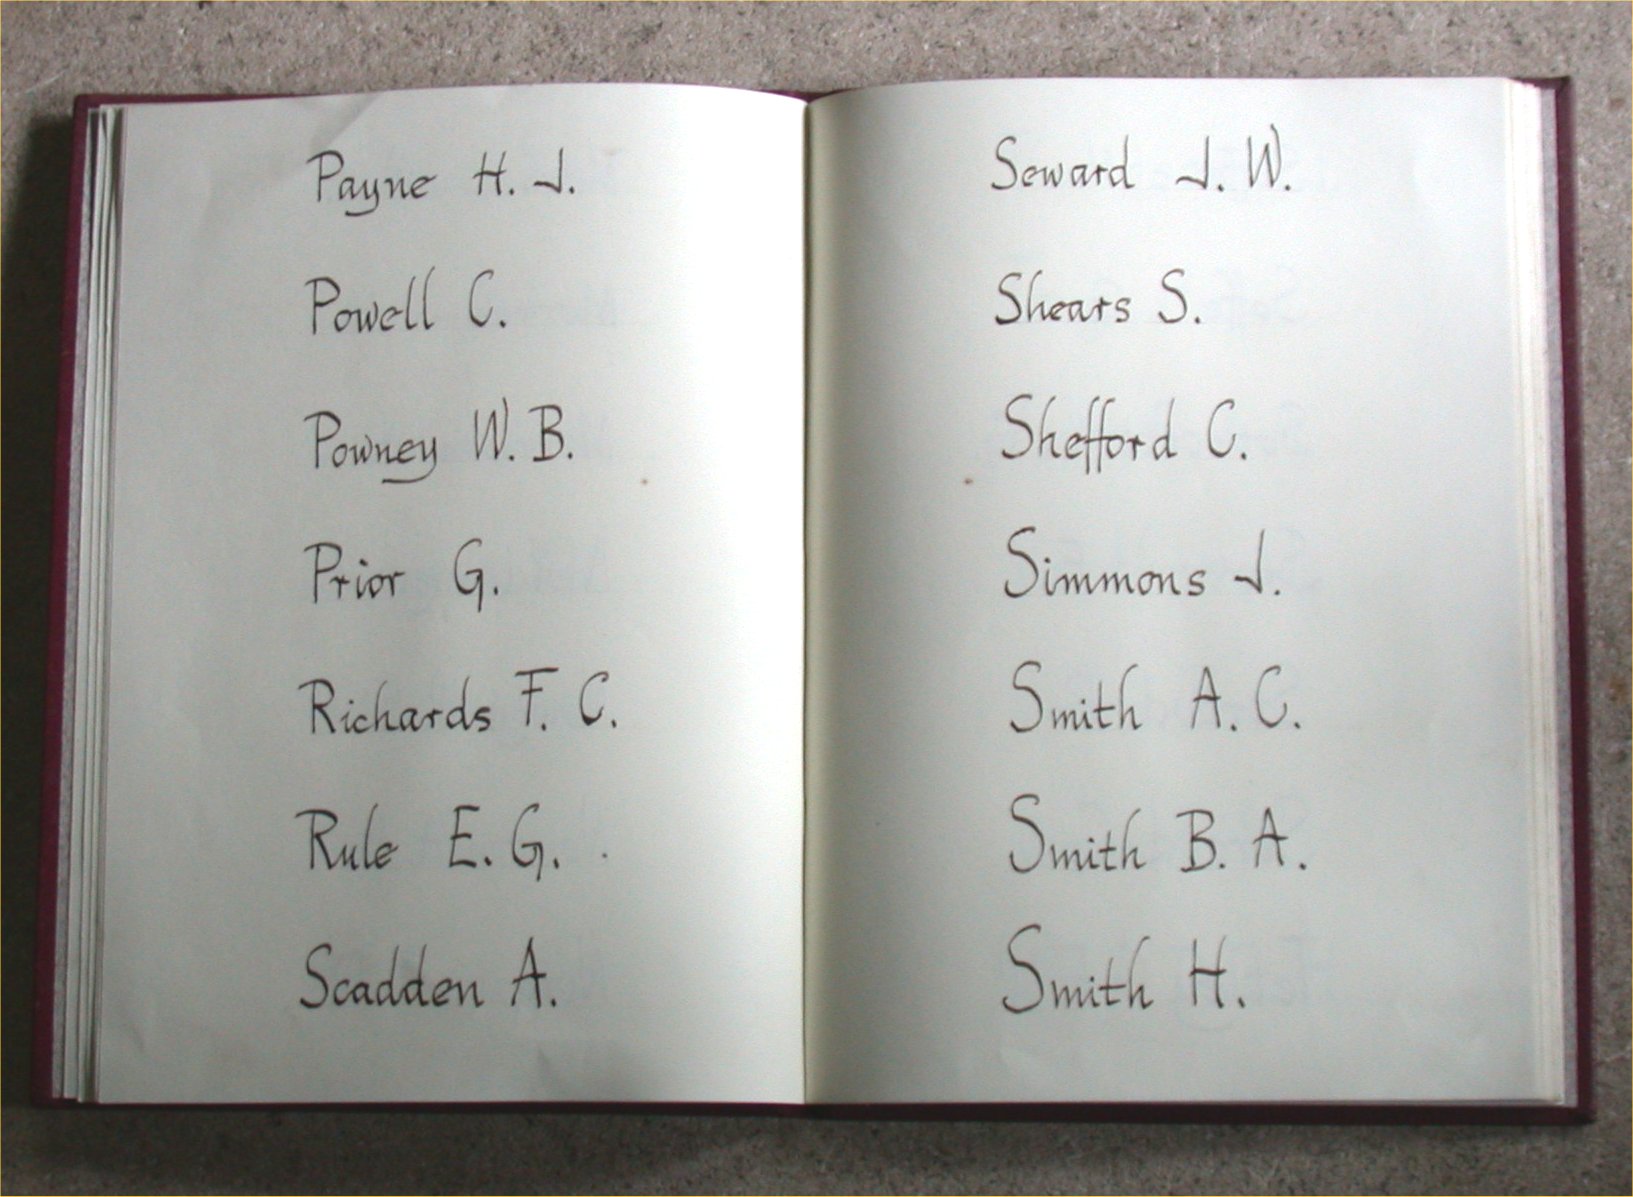 Payne H. J.
Powell C.
Powney W. B.
Prior G.
Richards F. C.
Rule E. G.
Scadden A.
Seward J. W.
Shears S.
Shefford C.
Simmons J.
Smith A. C.
Smith B. A.
Smith H.